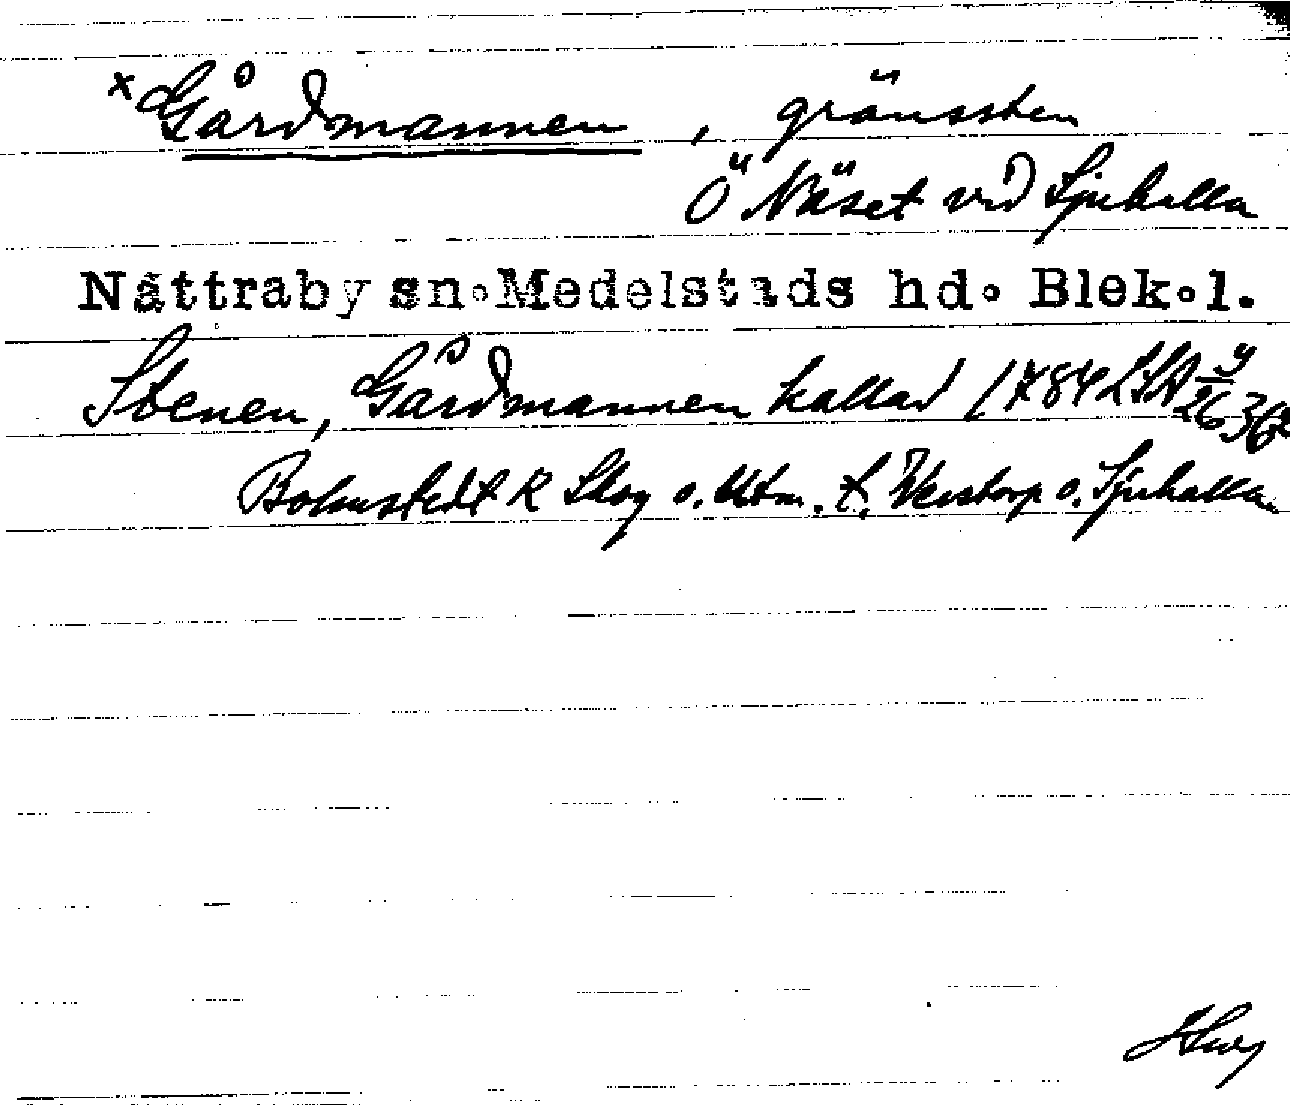 x Gårdmannen, gränssten
Ö Näset vid Sjuhalla
Nättraby sn. Medelstads hd. Blek.l.
Stenen, Gårdmannen kallad 1784 LSA
Bohmstedt R Skog o. Utm. t. Verstorp o. Sjuhalla